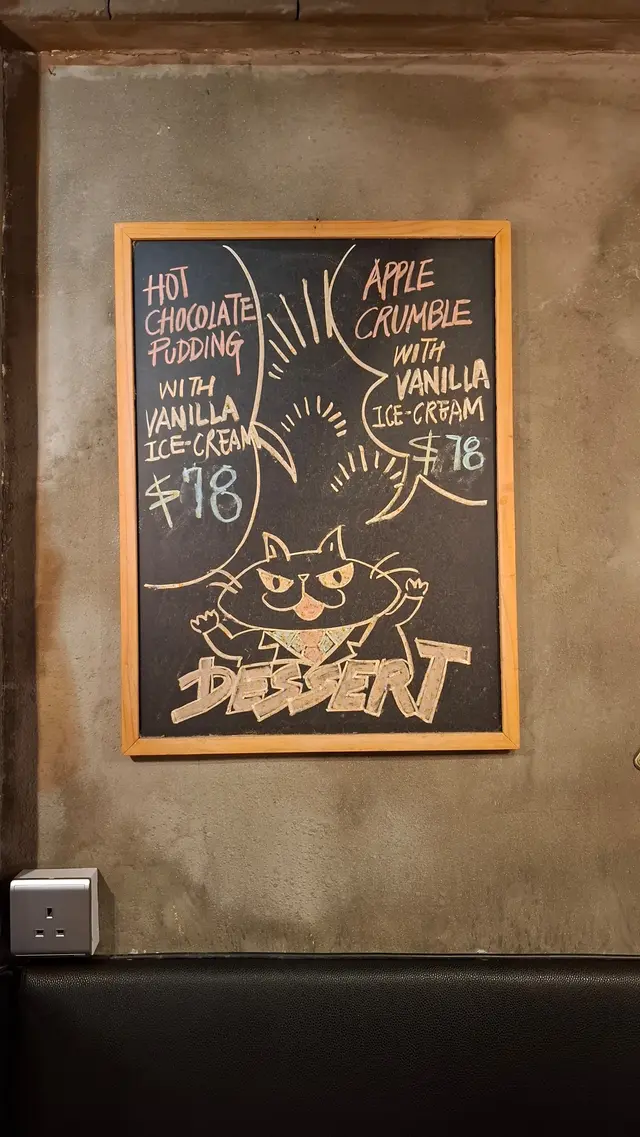 HOT
CHOCOLATE
PUDDING
WITH
VANILLA
ICE-CREAM
$78
APPLE
CRUMBLE
WITH
VANILLA
ICE-CREAM
$78
DESSERT